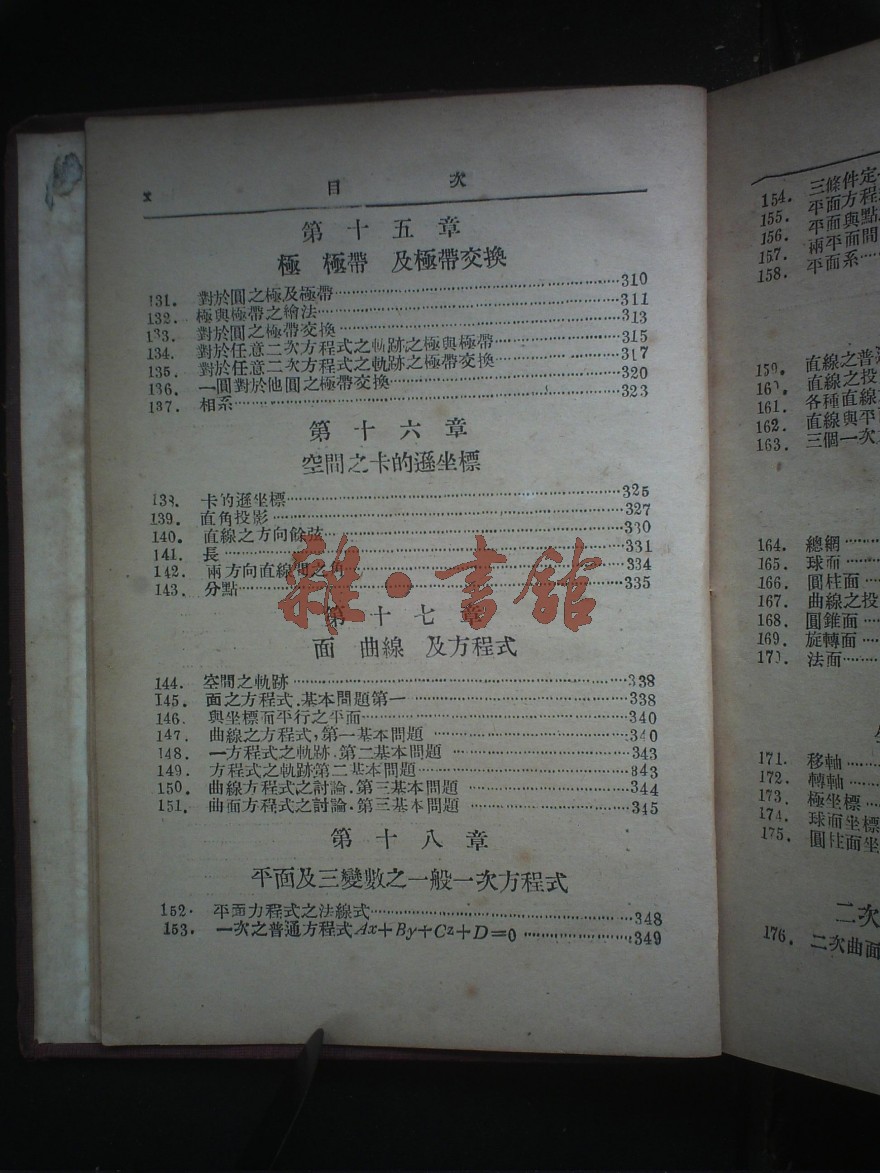 x 目 次
第十五章
極 極帶 及極帶交換
131. 對於圓之極及極帶 310
132. 極與極帶之繪法 311
133. 對於圓之極帶交換 313
134. 對於任意二次方程式之軌跡之極與極帶 315
135. 對於任意二次方程式之軌跡之極帶交換 317
136. 一圓對於他圓之極帶交換 320
137. 相系 323
第十六章
空間之卡的遜坐標
138. 卡的遜坐標 325
139. 直角投影 327
140. 直線之方向餘弦 330
141. 長 331
142. 兩方向直線間之角 334
143. 分點 335
雜·書館
第十七章
面 曲線 及方程式
144. 空間之軌跡 338
145. 面之方程式.基本問題第一 338
146. 與坐標面平行之平面 340
147. 曲線之方程式,第一基本問題 340
148. 一方程式之軌跡.第二基本問題 343
149. 方程式之軌跡第二基本問題 343
150. 曲線方程式之討論.第三基本問題 344
151. 曲面方程式之討論.第三基本問題 345
第十八章
平面及三變數之一般一次方程式
152. 平面方程式之法線式 348
153. 一次之普通方程式Ax+By+Cz+D=0 349
154. 三條件定
155. 平面方程
156. 平面與點
157. 兩平面間
158. 平面系
159. 直線之普
160. 直線之投
161. 各種直線
162. 直線與平
163. 三個一次
164. 總網
165. 球面
166. 圓柱面
167. 曲線之投
168. 圓錐面
169. 旋轉面
170. 法面
171. 移軸
172. 轉軸
173. 極坐標
174. 球面坐標
175. 圓柱面坐
二次
176. 二次曲面